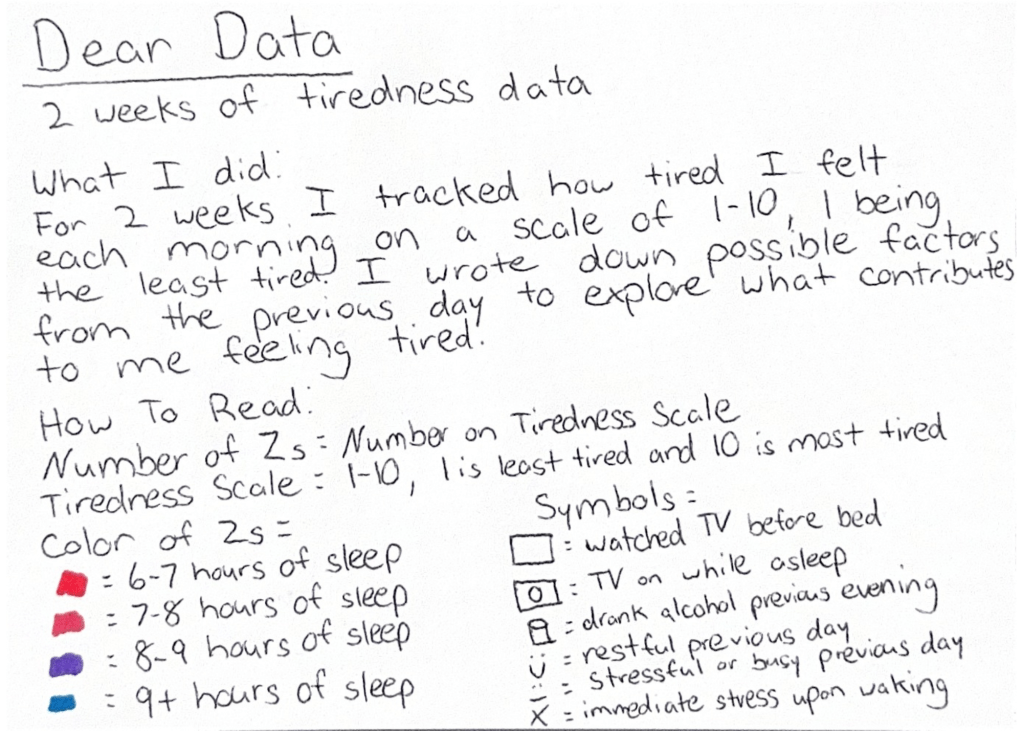 Dear Data
2 weeks of tiredness data
What I did:
For 2 weeks I tracked how tired I felt
each morning on a scale of 1-10, 1 being
the least tired. I wrote down possible factors
from the previous day to explore what contributes
to me feeling tired.
How To Read:
Number of Zs = Number on Tiredness Scale
Tiredness Scale = 1-10, 1 is least tired and 10 is most tired
Color of Zs =
= 6-7 hours of sleep
= 7-8 hours of sleep
= 8-9 hours of sleep
= 9+ hours of sleep
Symbols =
= watched TV before bed
= TV on while asleep
= drank alcohol previous evening
= restful previous day
= stressful or busy previous day
X = immediate stress upon waking